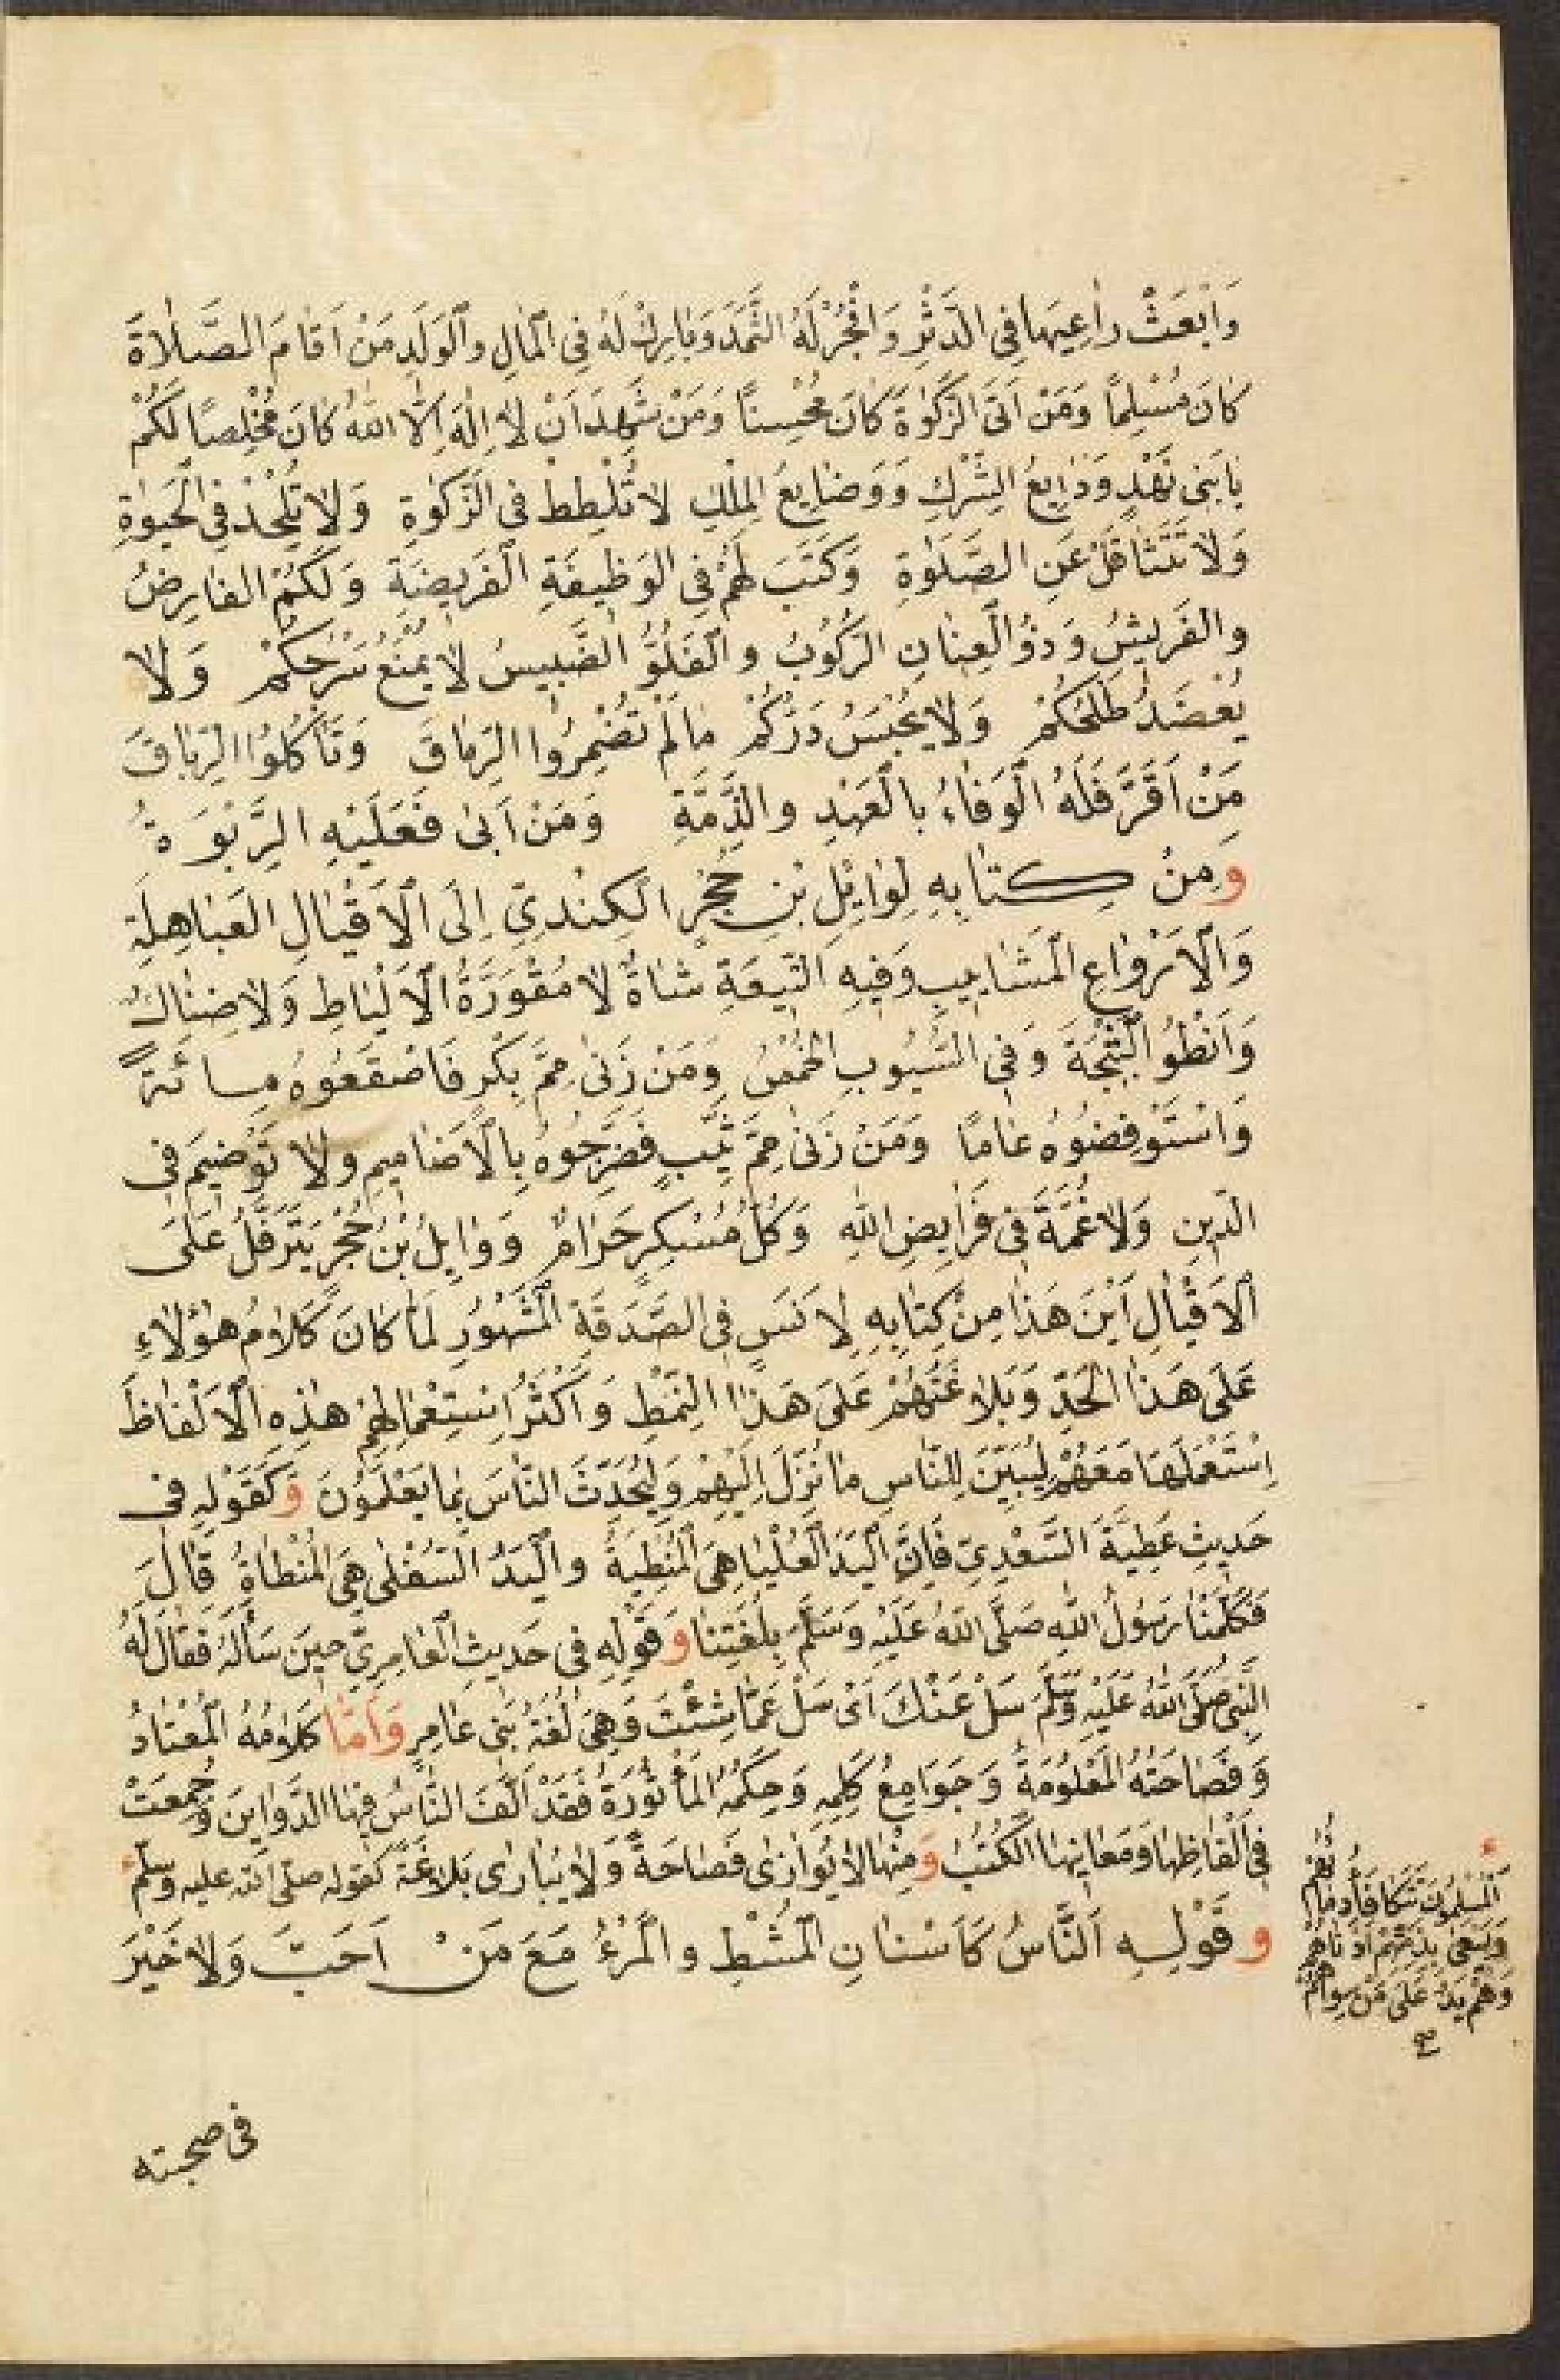 وَابْعَثْ رَاعِيَهَا فِي الدَّثْرِ وَافْجُرْ لَهُ الثَّمَدَ وَبَارِكْ لَهُ فِي الْمَالِ وَالْوَلَدِ مَنْ اَقَامَ الصَّلَاةَ
كَانَ مُسْلِمًا وَمَنْ اَتَى الزَّكٰوةَ كَانَ مُحْسِنًا وَمَنْ شَهِدَ اَنْ لَا اِلٰهَ اِلَّا اللهُ كَانَ مُخْلِصًا لَكُمْ
يَا بَنِي نَهْدٍ وَدَايِعُ الشِّرْكِ وَوَضَايِعُ الْمِلْكِ لَا تُلْطِطْ فِي الزَّكٰوةِ وَلَا تُلْحِدْ فِي الْحَيٰوةِ
وَلَا تَتَثَاقَلْ عَنِ الصَّلٰوةِ وَكَتَبَ لَهُمْ فِي الْوَظِيفَةِ الْفَرِيضَةِ وَلَكُمُ الْفَارِضُ
وَالْفَرِيشُ وَذُو الْعِنَانِ الرَّكُوبُ وَالْفَلُوُّ الضَّبِيسُ لَا يُمْنَعُ سَرْحُكُمْ وَلَا
يُعْضَدُ طَلْحُكُمْ وَلَا يُحْبَسُ دَرُّكُمْ مَا لَمْ تُضْمِرُوا الرِّمَاقَ وَتَأْكُلُوا الرِّبَاقَ
مَنْ اَقَرَّ فَلَهُ الْوَفَاءُ بِالْعَهْدِ وَالذِّمَّةِ وَمَنْ اَبَى فَعَلَيْهِ الرِّبْوَةُ
وَمِنْ كِتَابِهِ لِوَايِلِ بْنِ حُجْرٍ الْكِنْدِيِّ اِلَى الْاَقْيَالِ الْعَبَاهِلَةِ
وَالْاَرْوَاعِ الْمَشَابِيبِ وَفِيهِ التِّيعَةِ شَاةٌ لَا مُقْوَرَّةُ الْاَلْيَاطِ وَلَا ضِنَاكٌ
وَاَنْطُوا الثَّبَجَةَ وَفِي السُّيُوبِ الْخُمُسُ وَمَنْ زَنَى مِمَّ بَكْرٍ فَاصْقَعُوهُ مِائَةً
وَاسْتَوْفِضُوهُ عَامًا وَمَنْ زَنَى مِمَّ ثَيِّبٍ فَضَرِّجُوهُ بِالْاَضَامِيمِ وَلَا تَوْضِيمَ فِي
الدِّينِ وَلَا غُمَّةَ فِي فَرَايِضِ اللهِ وَكُلُّ مُسْكِرٍ حَرَامٌ وَوَايِلُ بْنُ حُجْرٍ يَتَرَفَّلُ عَلَى
الْاَقْيَالِ اَيْنَ هَذَا مِنْ كِتَابِهِ لِاَنَسٍ فِي الصَّدَقَةِ الْمَشْهُورِ لَمَّا كَانَ كَلَامُ هٰؤُلَاءِ
عَلَى هَذَا الْحَدِّ وَبَلَاغَتُهُمْ عَلَى هَذَا النَّمَطِ وَاَكْثَرُ اسْتِعْمَالِهِمْ هٰذِهِ الْاَلْفَاظَ
اِسْتَعْمَلَهَا مَعَهُمْ لِيُبَيِّنَ لِلنَّاسِ مَا نُزِّلَ اِلَيْهِمْ وَلِيُحَدِّثَ النَّاسَ بِمَا يَعْلَمُونَ وَكَقَوْلِهِ فِي
حَدِيثِ عَطِيَّةَ السَّعْدِيِّ فَاِنَّ الْيَدَ الْعُلْيَا هِيَ الْمُنْطِيَةُ وَالْيَدُ السُّفْلَى هِيَ الْمُنْطَاةُ قَالَ
فَكَلَّمَنَا رَسُولُ اللهِ صَلَّى اللهُ عَلَيْهِ وَسَلَّمَ بِلُغَتِنَا وَقَوْلِهِ فِي حَدِيثِ الْعَامِرِيِّ حِينَ سَأَلَهُ فَقَالَ لَهُ
النَّبِيُّ صَلَّى اللهُ عَلَيْهِ وَسَلَّمَ سَلْ عَنْكَ اَيْ سَلْ عَمَّا شِئْتَ وَهِيَ لُغَةُ بَنِي عَامِرٍ وَاَمَّا كَلَامُهُ الْمُعْتَادُ
وَفَصَاحَتُهُ الْمَعْلُومَةُ وَجَوَامِعُ كَلِمِهِ وَحِكَمُهُ الْمَأْثُورَةُ فَقَدْ اَلَّفَ النَّاسُ فِيهَا الدَّوَاوِينَ وَجُمِعَتْ
فِي اَلْفَاظِهَا وَمَعَانِيهَا الْكُتُبُ وَمِنْهَا لَا يُوَازَى فَصَاحَةً وَلَا يُبَارَى بَلَاغَةً كقوله صلى الله عليه وسلم
وَقَوْلِهِ اَلنَّاسُ كَاَسْنَانِ الْمُشْطِ وَالْمَرْءُ مَعَ مَنْ اَحَبَّ وَلَا خَيْرَ
في صحبته
اَلْمُسْلِمُونَ تَتَكَافَأُ دِمَاؤُهُمْ
وَيَسْعَى بِذِمَّتِهِمْ اَدْنَاهُمْ
وَهُمْ يَدٌ عَلَى مَنْ سِوَاهُمْ